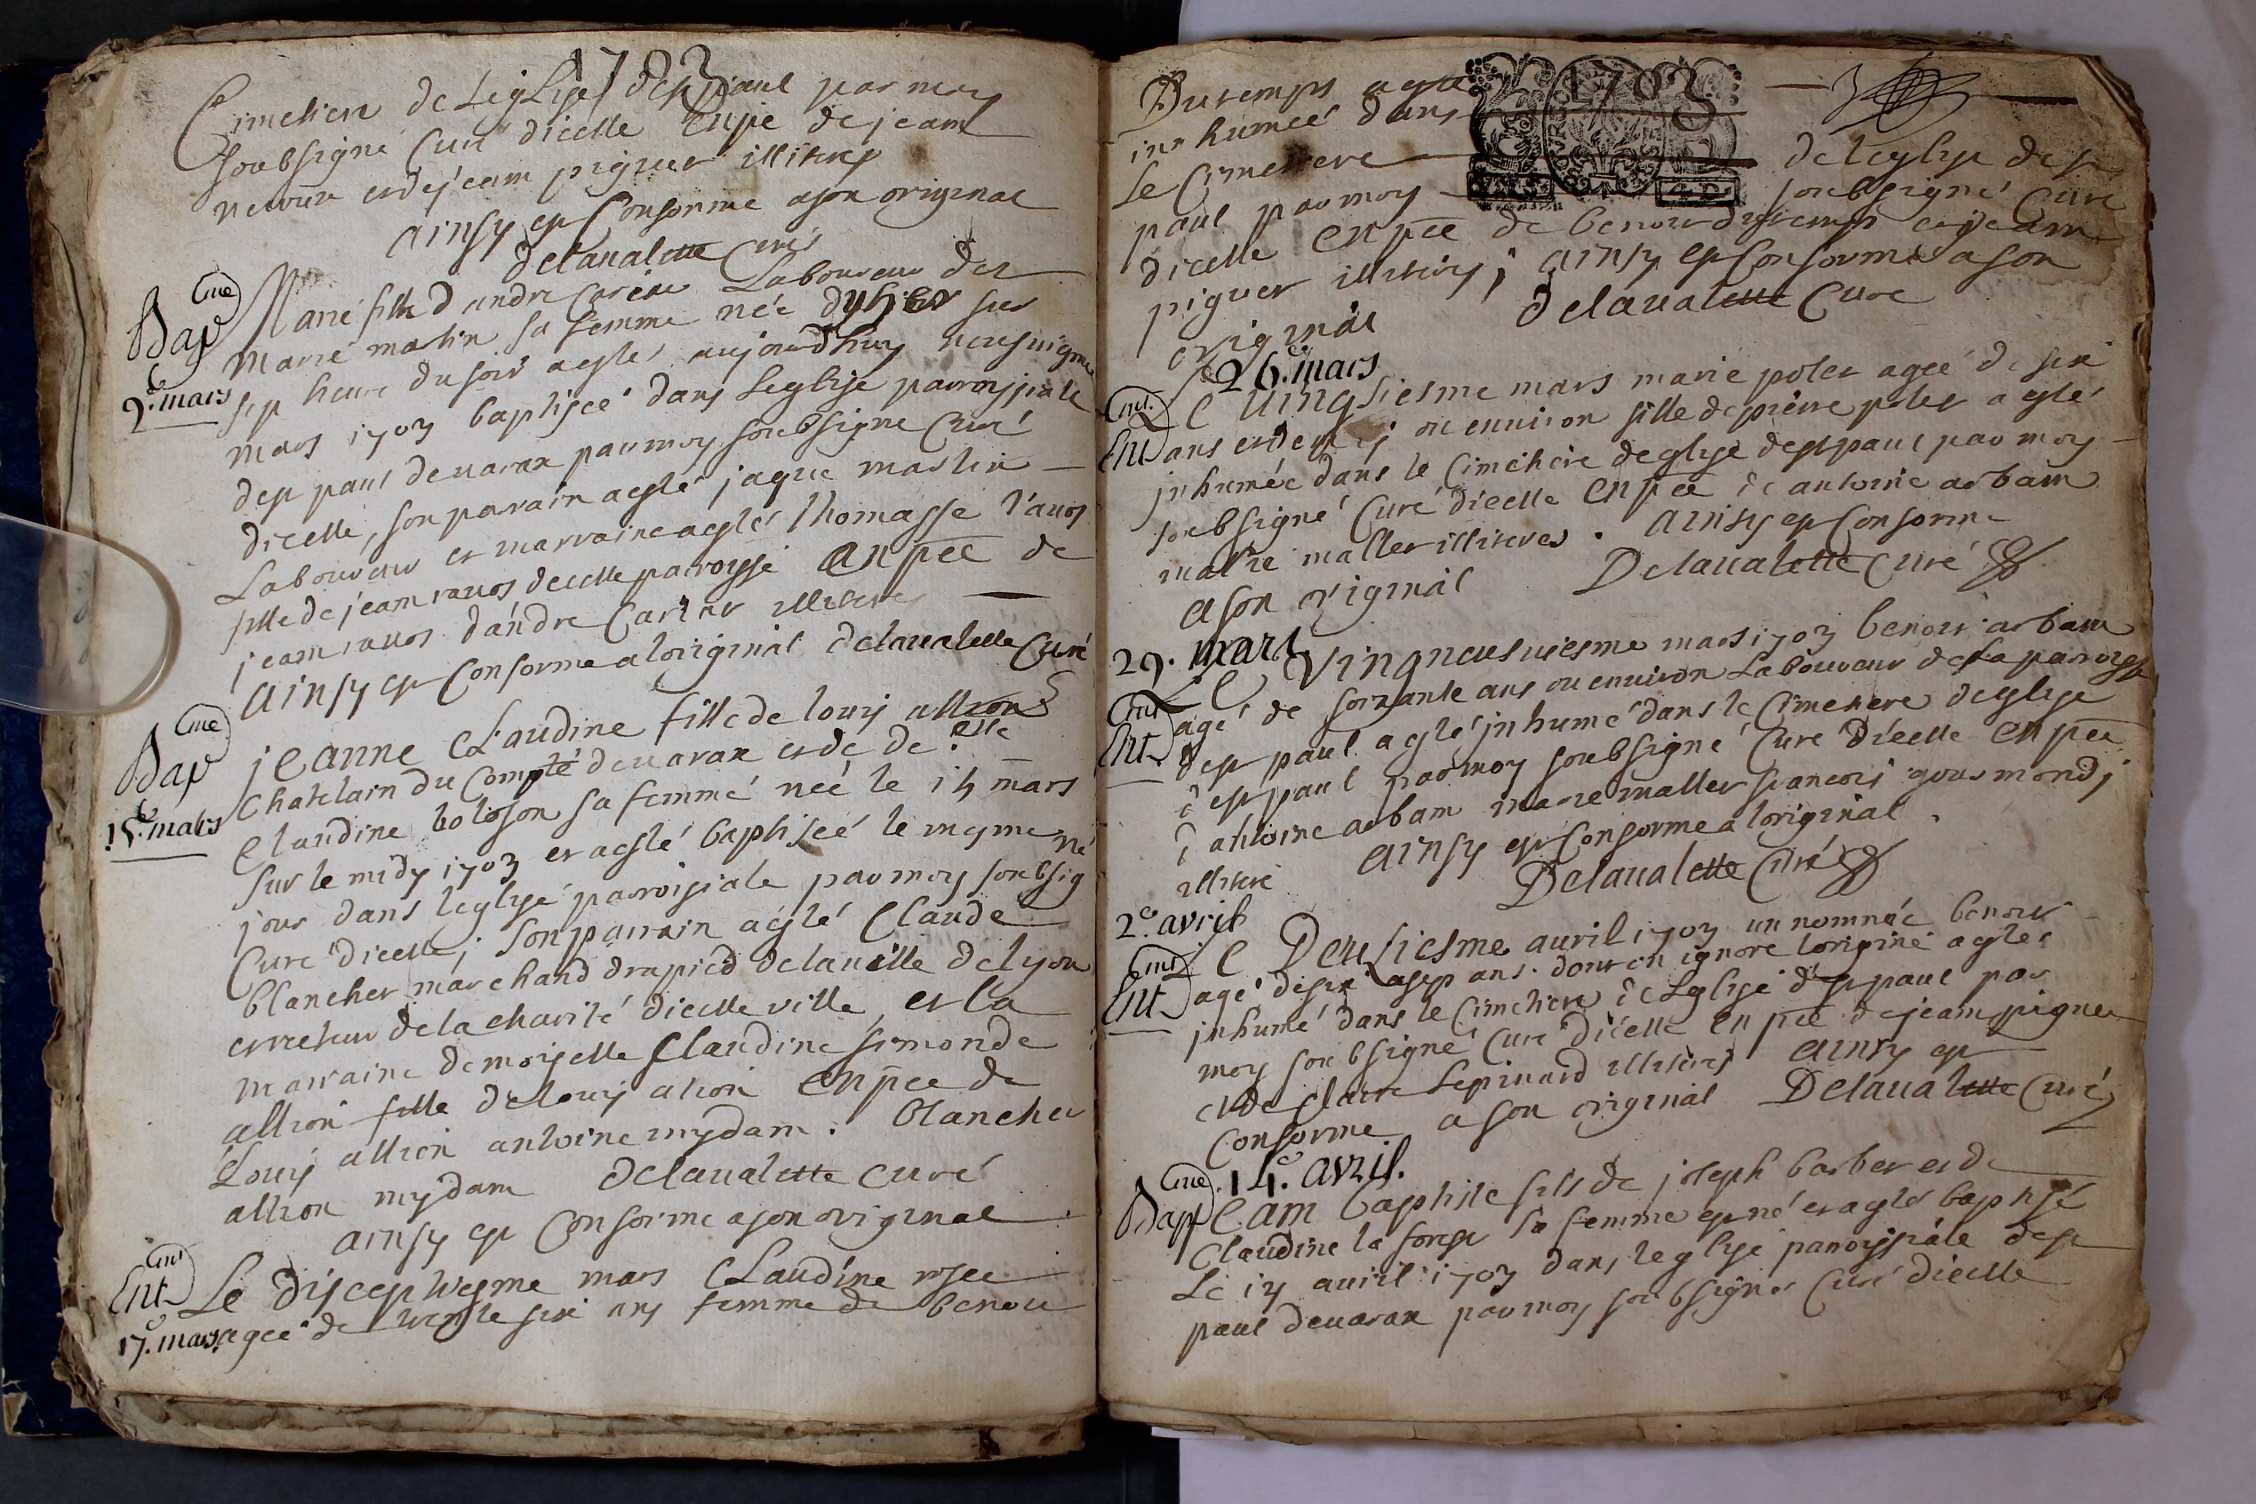 1703
Cimetiere de Leglise de st paul par moy
soubsigné Curé dicelle en pñe de jeam
et de jeam piguet illiteres
ainsy est Conforme a son original
Delaualette Curé
Cuë
Bap
9.e mars
Marie fille d andre Laboureur de st
Marie matin sa femme née dhier sur
sep heure du soir a esté aujourdhuy
mars 1703 baptisée dans Leglise parroissiale
de st paul de uarax par moy soubsigne Curé
dicelle, son parain a esté jaque martin
Laboureur et marraine a esté Thomasse rauos
fille de jeam rauos dicelle paroisse en pñe de
jeam rauos dandre illiteres
ainsy est Conforme a loriginal Delaualette Curé
Cuë
Bap
15.e mars
jeanne Claudine fille de louis allion
Chatelain du Compté de uarax et de delle
Claudine boloson sa femme née le 15 mars
sur le midy 1703 et a esté baptisée le mesme
jour dans leglise paroisiale par moy soubsigné
Curé dicelle; son parrain a esté Claude
blanchet marchand drapied de la uille de lyon
et recteur de la charité dicelle ville, et la
marraine demoiselle Claudine simonde
allion fille de louis alion en pñce de
Louis allion antoine mydam. blanchet
allion mydam Delaualette curé
ainsy est Conforme a son original
Cuë
Ent
17.e mars
Le disceptiesme mars Claudine
agée de trente six ans femme de benou
1703
Dutemps a esté
inhumée dans
Le Cimetiere de leglise de st
paul par moy soubsigné Curé
dicelle en pñce de benoit dutemps et jeam
piguet illiteres; ainsy est Conforme a son
original Delaualette Curé
26.e mars
Cuë
Ent
Le uingsiesme mars marie polet agée de six
ans et demy ou enuiron fille de pierre polet a esté
inhumée dans le Cimetiere deglise de st paul par moy
soubsigné Curé dicelle en pñce de antoine arbam
matie mallet illiteres. ainsy est Conforme
a son original Delaualette Curé
29. mars
Cuë
Ent
Le Vingneufuiesme mars 1703 benoit arbam
agé de soixante ans ou enuiron Laboureur de La paroisse
de st paul a esté inhumé dans le Cimetiere deglise
de st paul par moy soubsigné Curé dicelle en pñce
d antoine arbam marie mallet francois gourmondj
illiteré ainsy est Conforme a loriginal.
Delaualette Curé
2.e avril
Cuë
Ent
Le Deusiesme auril 1703 un nommée benoit
agé de six a sept ans dont on ignore lorigine a esté
inhumé dans le Cimetiere de Leglise de st paul par
moy soubsigné Curé dicelle en pñce de jeam piguet
et de Claire Lepinard illiteres ainsy est
Conforme a son original Delaualette Curé
14.e avril.
Cuë
Bapt
jeam baptiste fils de joseph barbet et de
Claudine la forge sa femme est né et a esté baptisé
Le auril 1703 dans leglise paroissiale de st
paul de uarax par moy soubsigné Curé dicelle